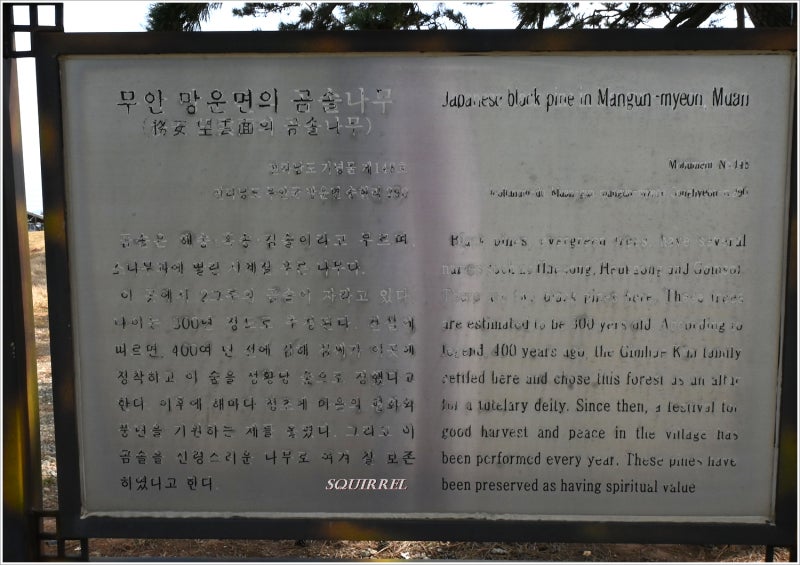 무안 망운면의 곰솔나무
(務安 望雲面의 곰솔나무)
전라남도 기념물 제 호
전라남도 무안군 망운면
곰솔은 해송·흑송·검솔이라고 부르며,
소나무과에 딸린 사계절 푸른 나무다.
이 곳에서 그루의 곰솔이 자라고 있다.
나이는 300년 정도로 추정된다. 전설에
따르면, 400여 년 전에 김해 김씨가 이곳에
정착하고 이 숲을 성황당 숲으로 정했다고
한다. 이후에 해마다 정초에 마을의 평화와
풍년을 기원하는 제를 올렸다. 그리고 이
곰솔을 신령스러운 나무로 여겨 잘 보존
하였다고 한다.
Japanese black pine in Mangun-myeon, Muan
Monument No.
Black pines, evergreen trees, have several
names such as Haesong, Heuksong and Gomsol.
There are black pines here. These trees
are estimated to be 300 yers old. According to
legend, 400 years ago, the Gimhae Kim family
settled here and chose this forest as an altar
for a tutelary deity. Since then, a festival for
good harvest and peace in the village has
been performed every year. These pines have
been preserved as having spiritual value
SQUIRREL